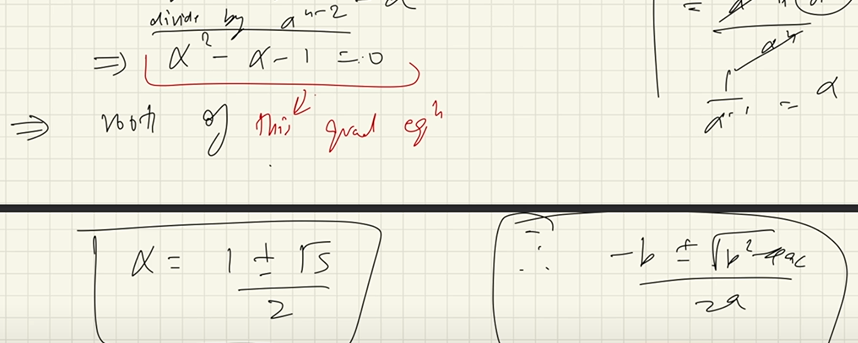 divide by α^n-2
⇒ α² - α - 1 = 0
⇒ roots of this quad eqⁿ
1/α^-1 = α
α = 1 ± √5 / 2
∴ -b ± √b² - 4ac / 2a